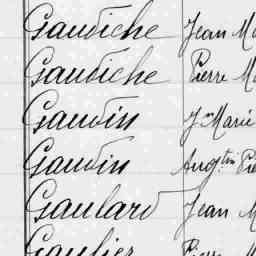 Gaudiche Jean M
Gaudiche Pierre M
Gaudin J Marie
Gaudin Aug.tin Pie
Gaulard Jean M
Gaulier Pierre M